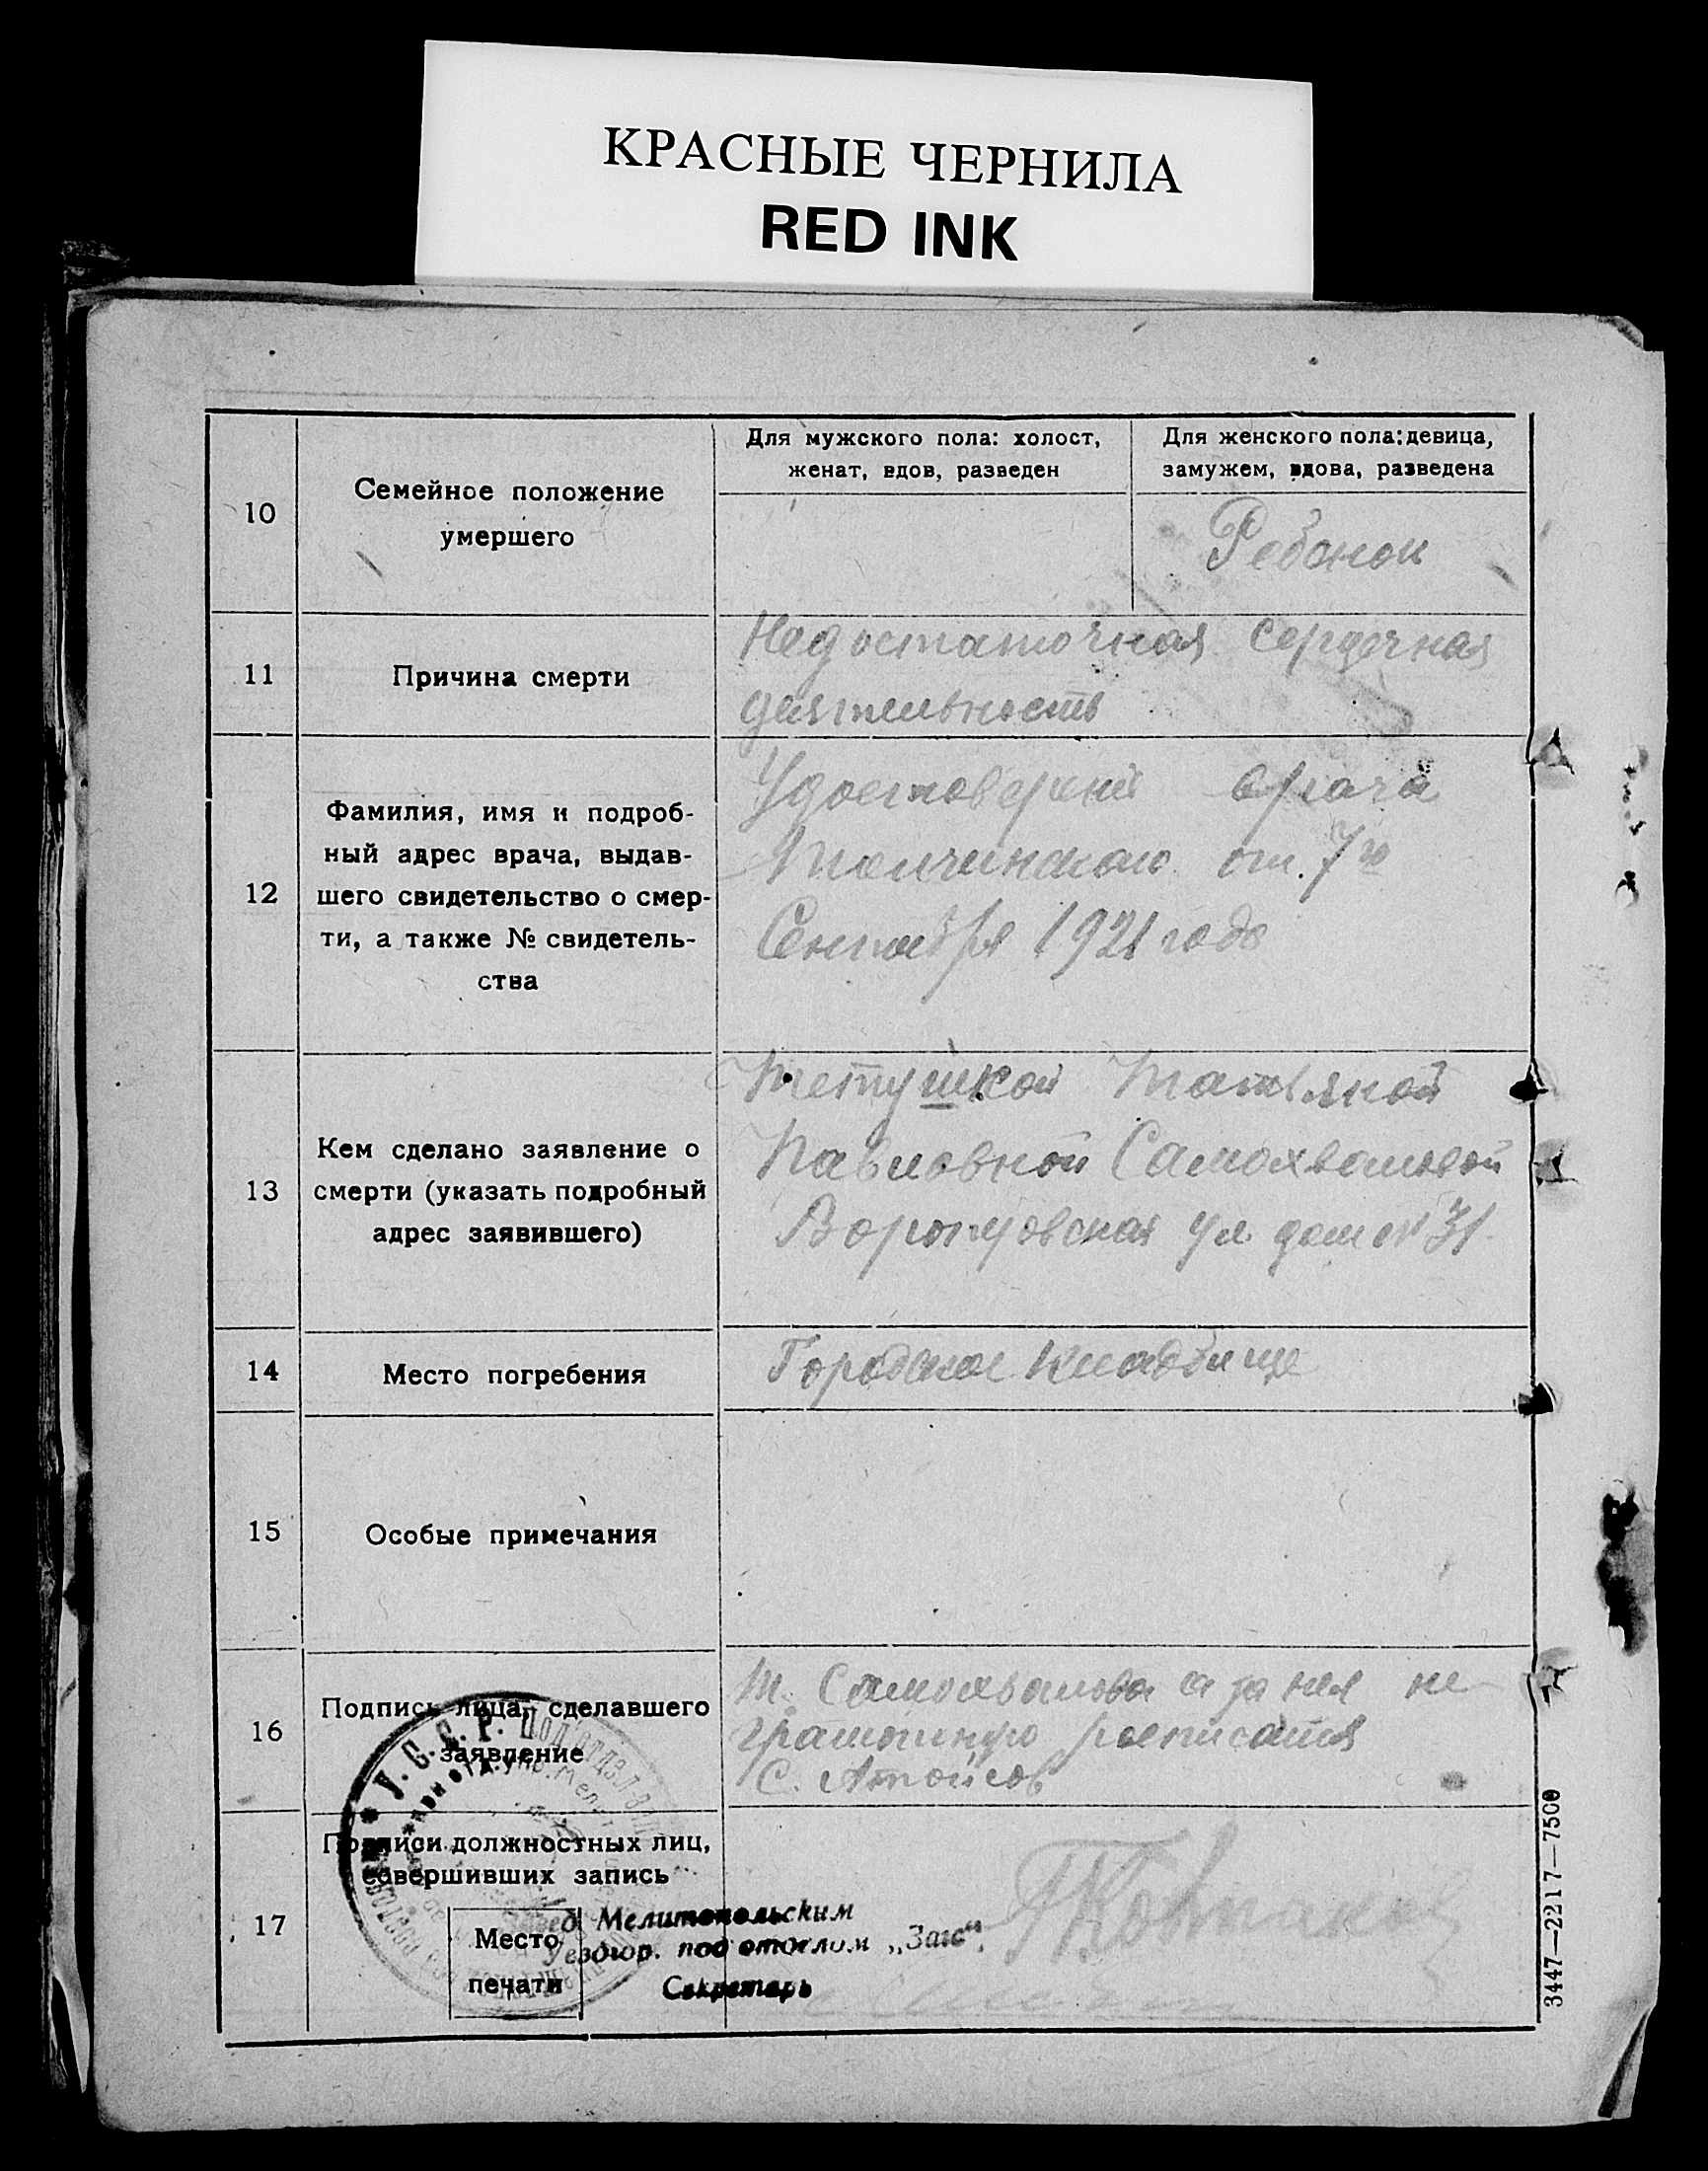 КРАСНЫЕ ЧЕРНИЛА
RED INK
10
Семейное положение
умершего
Для мужского пола: холост,
женат, вдов, разведен
Для женского пола: девица,
замужем, вдова, разведена
Ребенок
11
Причина смерти
Недостаточная сердечная
деятельность
12
Фамилия, имя и подроб-
ный адрес врача, выдав-
шего свидетельство о смер-
ти, а также № свидетель-
ства
врача
от 7го
Сентября 1921 года
13
Кем сделано заявление о
смерти (указать подробный
адрес заявившего)
Тетушкой Татьяной
Павловной Самохваловой
ул. дом № 31
14
Место погребения
Городское кладбище
15
Особые примечания
16
Подпись лица, сделавшего
заявление
Т. Самохвалова а за нея не
грамотную
С.
17
Подписи должностных лиц,
совершивших запись
Место
печати
У.С.С.Р.
Завед Мелитопольским
Уездгор. подотделом „Загс“.
Секретарь
3447—2217—7500